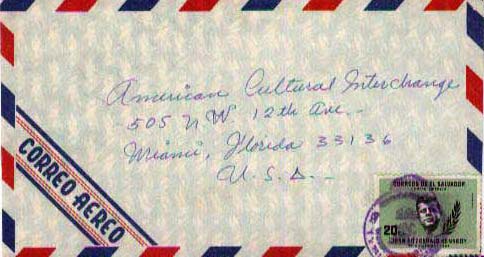 American Cultural Interchange
505 NW 12th Ave.
Miami, Florida 33136
U.S.A.
CORREO AEREO
CORREOS DE EL SALVADOR
20
JOHN FITZGERALD KENNEDY